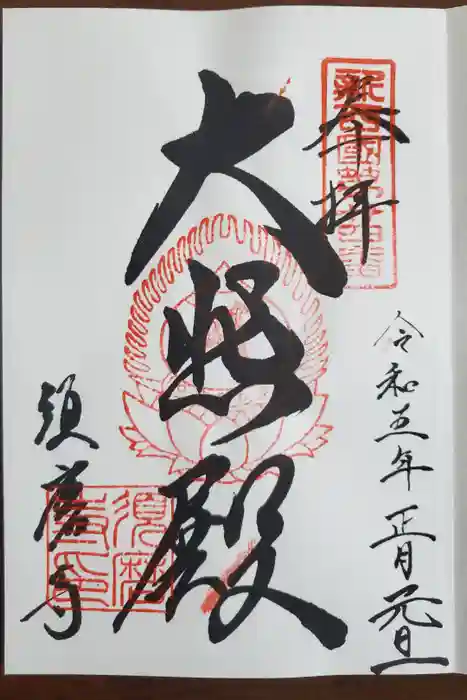 奉拝
令和五年正月元旦
大悲殿
須磨寺
須磨
寺印